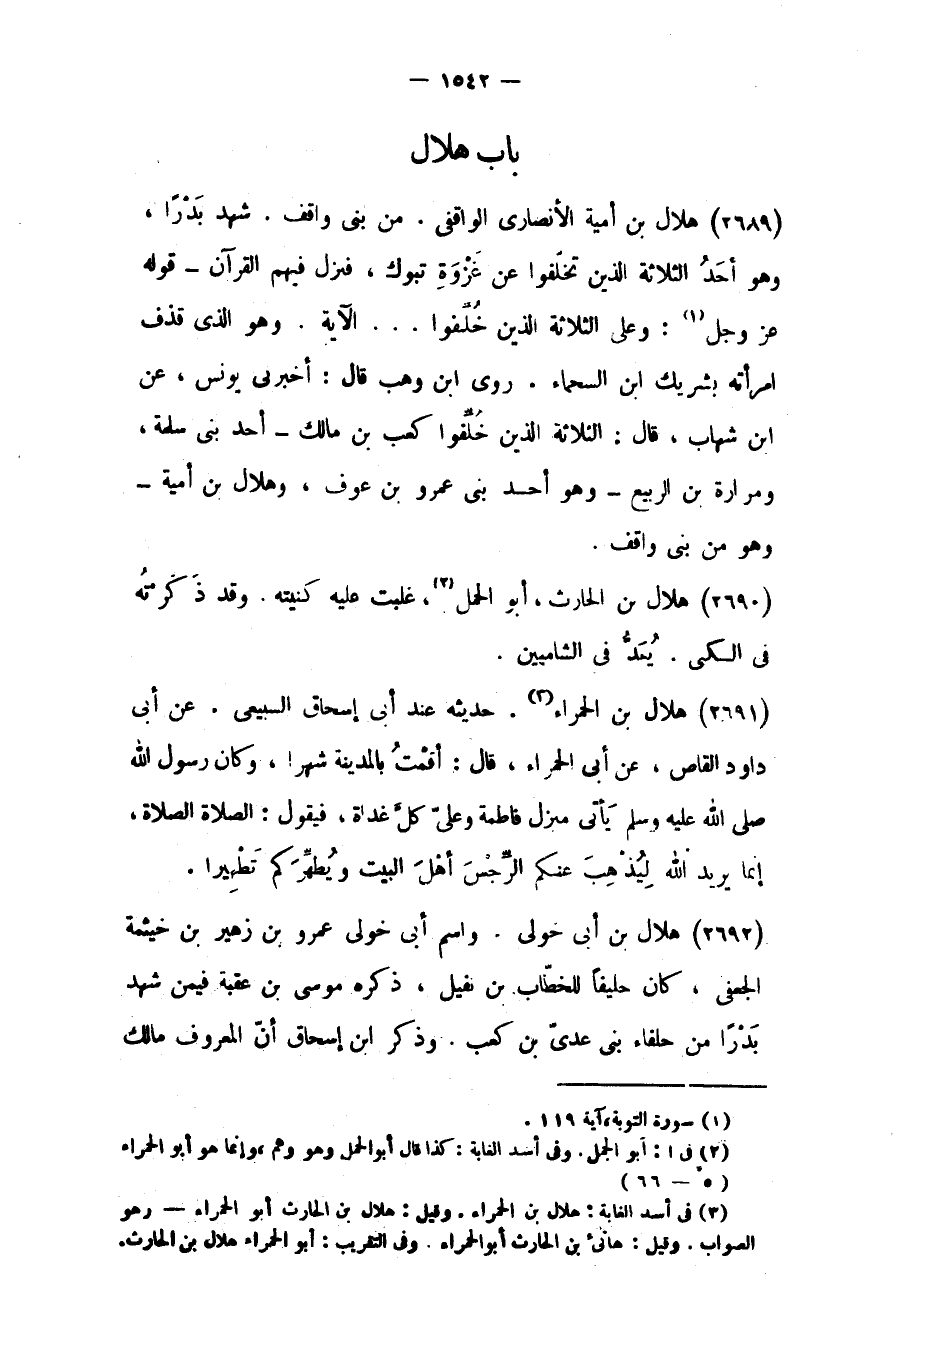 — ١٥٤٢ —
باب هلال
(٢٦٨٩) هلال بن أمية الأنصارى الواقفى . من بنى واقف . شهد بَدْرًا ،
وهو أحَدُ الثلاثة الذين تخلّفوا عن غَزْوَةِ تبوك ، فنزل فيهم القرآن – قوله
عز وجل(١) : وعلى الثلاثة الذين خُلِّفوا . . . الآية . وهو الذى قذف
امرأته بشريك ابن السحماء . روى ابن وهب قال : أخبرنى يونس ، عن
ابن شهاب ، قال : الثلاثة الذين خُلِّفوا كعب بن مالك – أحد بنى سلمة ،
ومرارة بن الربيع – وهو أحد بنى عمرو بن عوف ، وهلال بن أمية –
وهو من بنى واقف .
(٢٦٩٠) هلال بن الحارث ، أبو الحمل(٢)، غلبت عليه كنيته . وقد ذَكَرْتُه
فى الكنى . يُعَدُّ فى الشاميين .
(٢٦٩١) هلال بن الحمراء(٣) . حديثه عند أبى إسحاق السبيعى . عن أبى
داود القاص ، عن أبى الحمراء ، قال : أقمْتُ بالمدينة شهرا ، وكان رسول الله
صلى الله عليه وسلم يَأتى منزل فاطمة وعلىّ كلَّ غداة ، فيقول : الصلاة الصلاة ،
إنما يريد الله لِيُذْهِبَ عنكم الرِّجْسَ أهْلَ البيت ويُطهِّرَكم تَطْهِيرا .
(٢٦٩٢) هلال بن أبى خولى . واسم أبى خولى عمرو بن زهير بن خيثمة
الجعفى ، كان حليفاً للخطّاب بن نفيل ، ذكره موسى بن عقبة فيمن شهد
بَدْرًا من حلفاء بنى عدىّ بن كعب . وذكر ابن إسحاق أنّ المعروف مالك
(١) سورة التوبة، آية ١١٩ .
(٢) فى ا : أبو الجمل . وفى أسد الغابة : كذا قال أبو الحمل وهو وهم ، وإنما هو أبو الحمراء
( ٥ – ٦٦ )
(٣) فى أسد الغابة : هلال بن الحمراء . وقيل : هلال بن الحارث أبو الحمراء — وهو
الصواب . وقيل : هانئ بن الحارث أبو الحمراء . وفى التقريب : أبو الحمراء هلال بن الحارث.